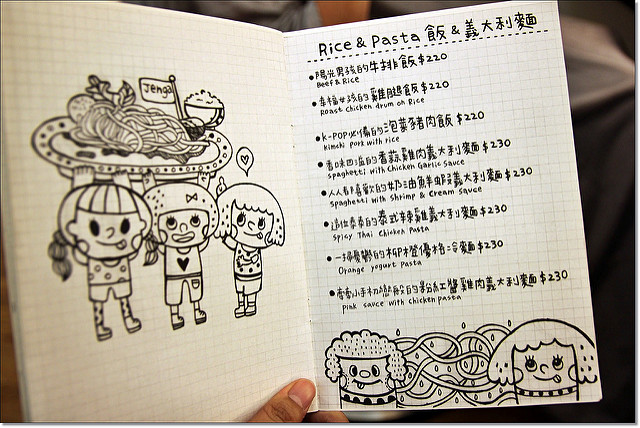 Jenga
Rice & Pasta 飯 & 義大利麵
陽光男孩的牛排飯 $220
Beef & Rice
幸福女孩的雞腿飯 $220
Roast Chicken drum on Rice
K-POP必備的泡菜豬肉飯 $220
Kimchi pork with rice
香味四溢的香蒜雞肉義大利麵 $230
spaghetti with Chicken Garlic Sauce
人人都喜歡的奶油鮮蝦義大利麵 $230
spaghetti with Shrimp & Cream sauce
泰式辣雞義大利麵 $230
Spicy Thai Chicken Pasta
一掃憂鬱的柳橙優格冷麵 $230
Orange yogurt Pasta
初戀般的粉紅醬雞肉義大利麵 $230
Pink sauce with chicken pasta